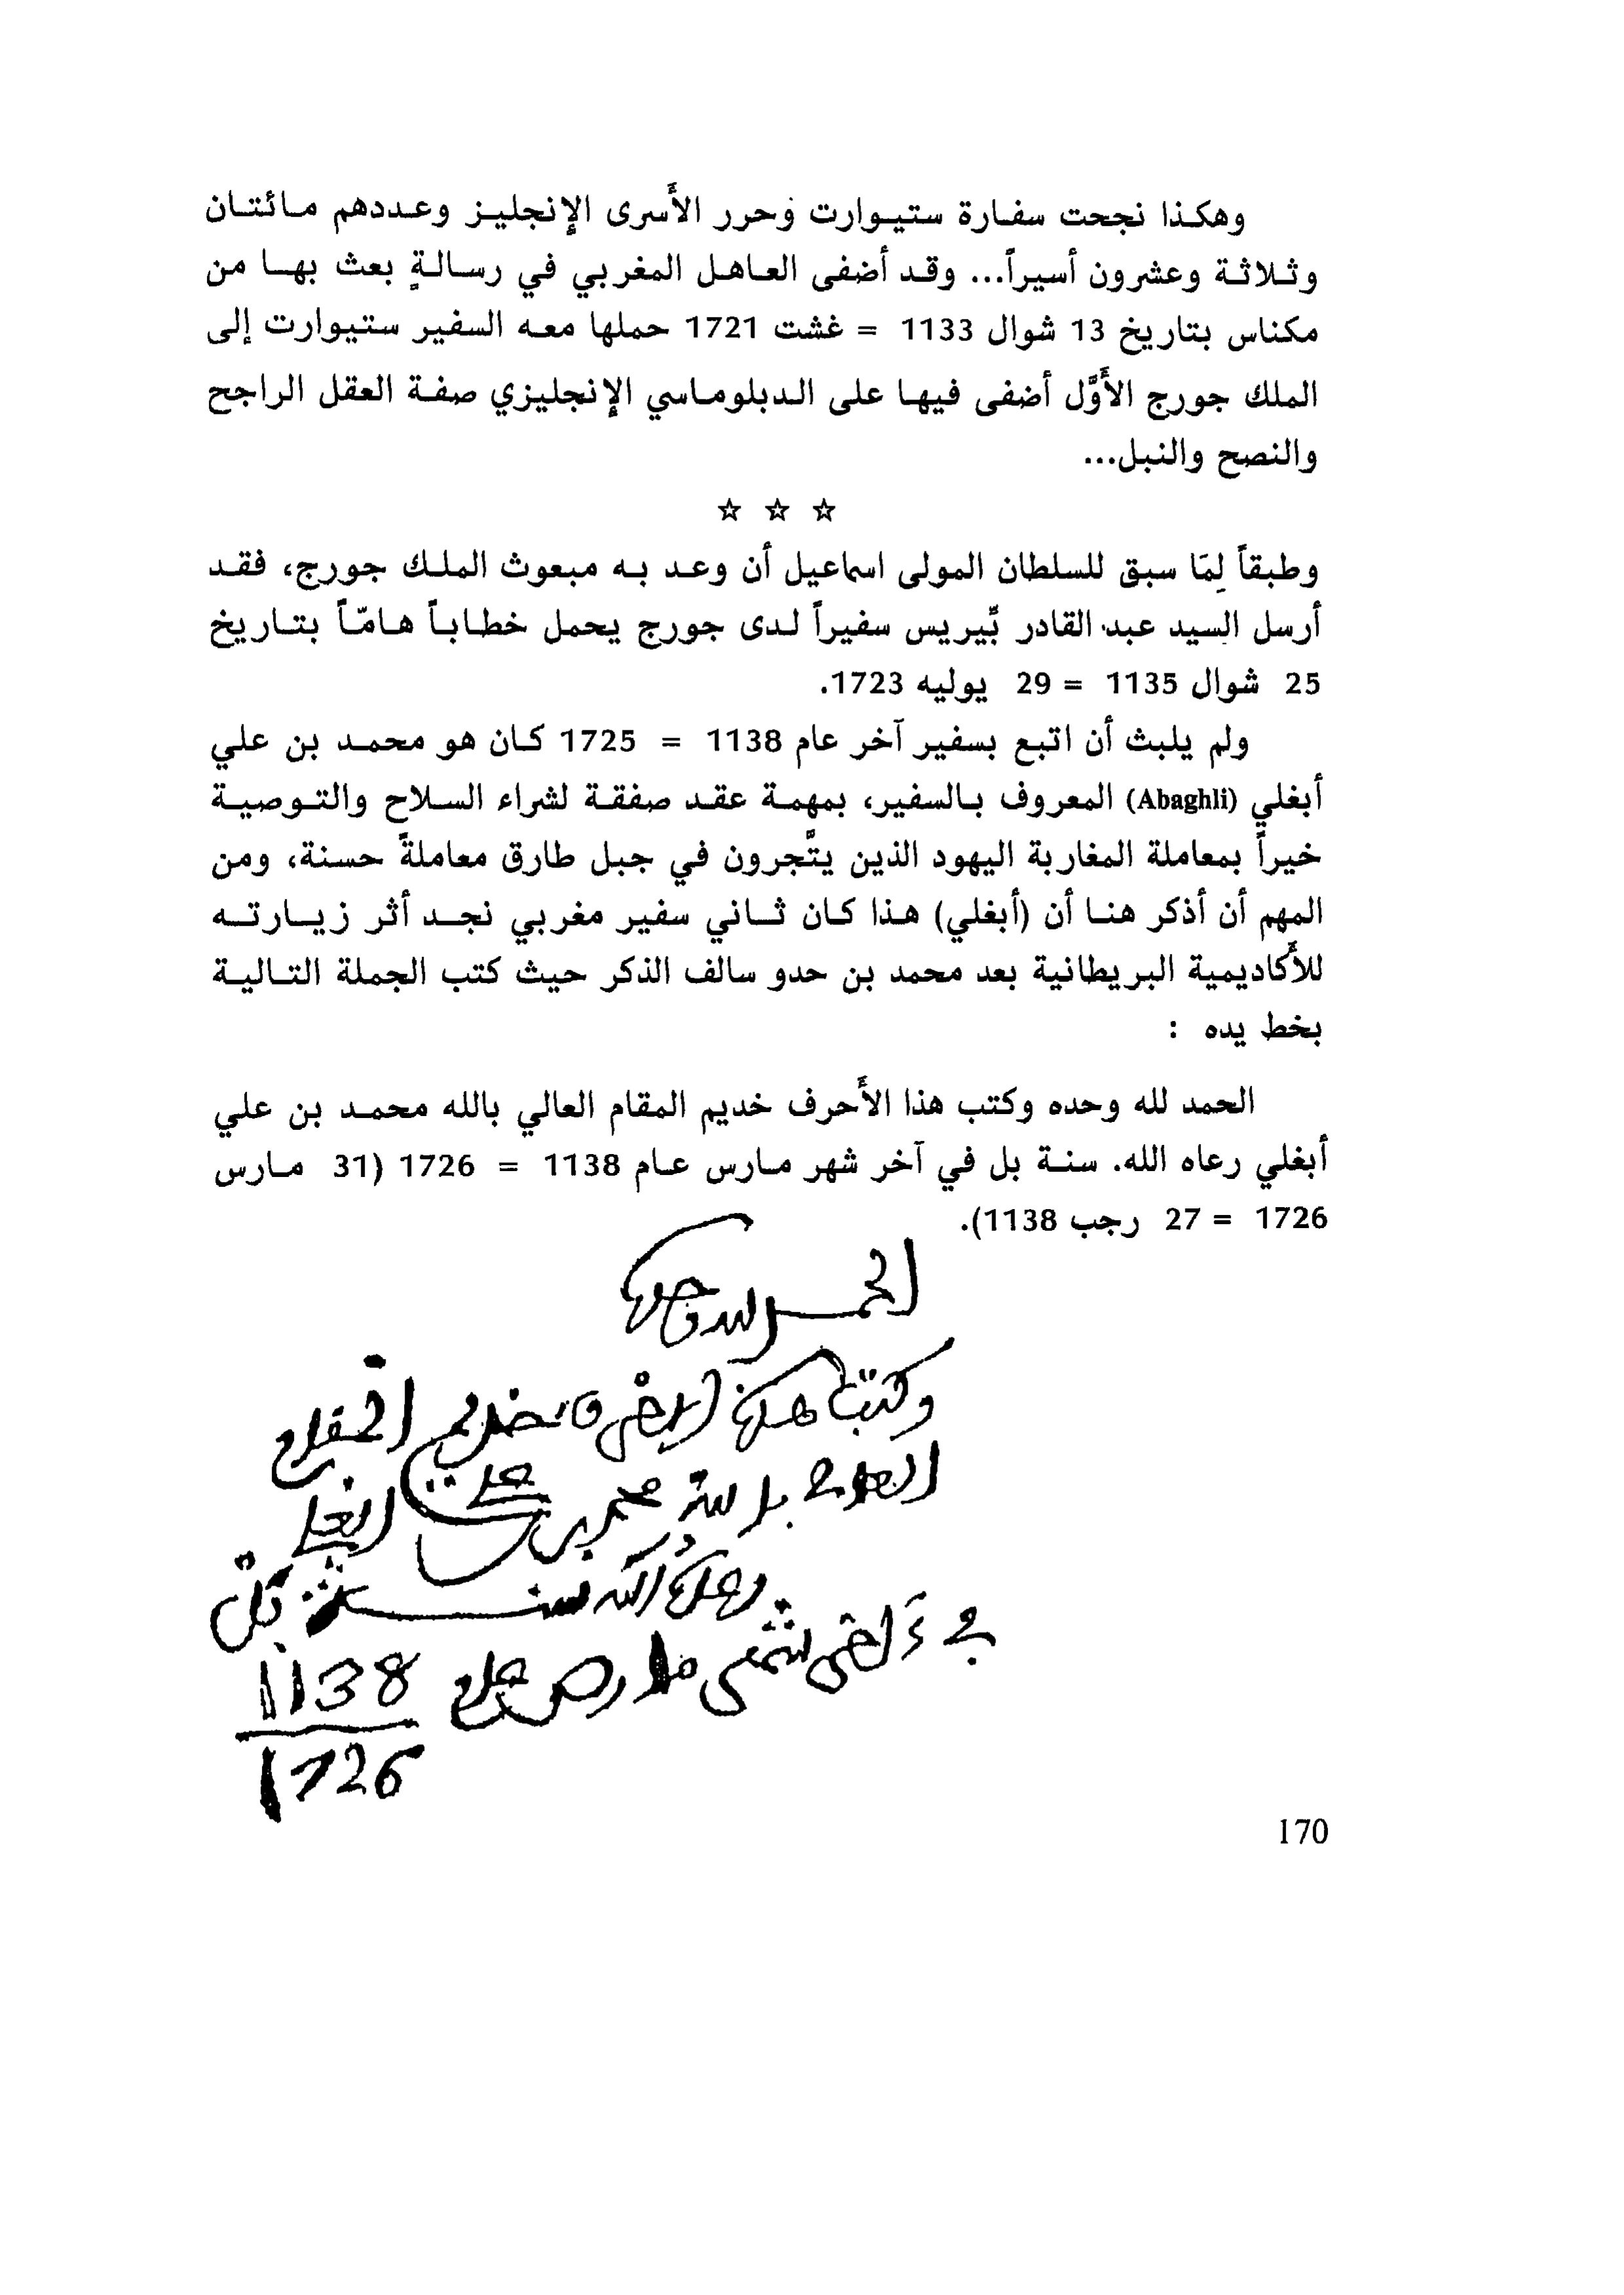 وهكذا نجحت سفارة ستيوارت وحرر الأسرى الإنجليز وعددهم مائتان
وثلاثة وعشرون أسيراً... وقد أضفى العاهل المغربي في رسالةٍ بعث بها من
مكناس بتاريخ 13 شوال 1133 = غشت 1721 حملها معه السفير ستيوارت إلى
الملك جورج الأوَّل أضفى فيها على الدبلوماسي الإنجليزي صفة العقل الراجح
والنصح والنبل...
☆ ☆ ☆
وطبقاً لِمَا سبق للسلطان المولى اسماعيل أن وعد به مبعوث الملك جورج، فقد
أرسل السيد عبد القادر بّيريس سفيراً لدى جورج يحمل خطاباً هامّاً بتاريخ
25 شوال 1135 = 29 يوليه 1723.
ولم يلبث أن اتبع بسفير آخر عام 1138 = 1725 كان هو محمد بن علي
أبغلي (Abaghli) المعروف بالسفير، بمهمة عقد صفقة لشراء السلاح والتوصية
خيراً بمعاملة المغاربة اليهود الذين يتَّجرون في جبل طارق معاملةً حسنة، ومن
المهم أن أذكر هنا أن (أبغلي) هذا كان ثاني سفير مغربي نجد أثر زيارته
للأكاديمية البريطانية بعد محمد بن حدو سالف الذكر حيث كتب الجملة التالية
بخط يده :
الحمد لله وحده وكتب هذا الأحرف خديم المقام العالي بالله محمد بن علي
أبغلي رعاه الله. سنة بل في آخر شهر مارس عام 1138 = 1726 (31 مارس
1726 = 27 رجب 1138).
الحمد لله وحده
وكتب هذا الأحرف خديم المقام
العالي بالله محمد بن علي ابغلي
رعاه الله سنة بل
في ءاخر شهر مارس عام 1138
1726
170